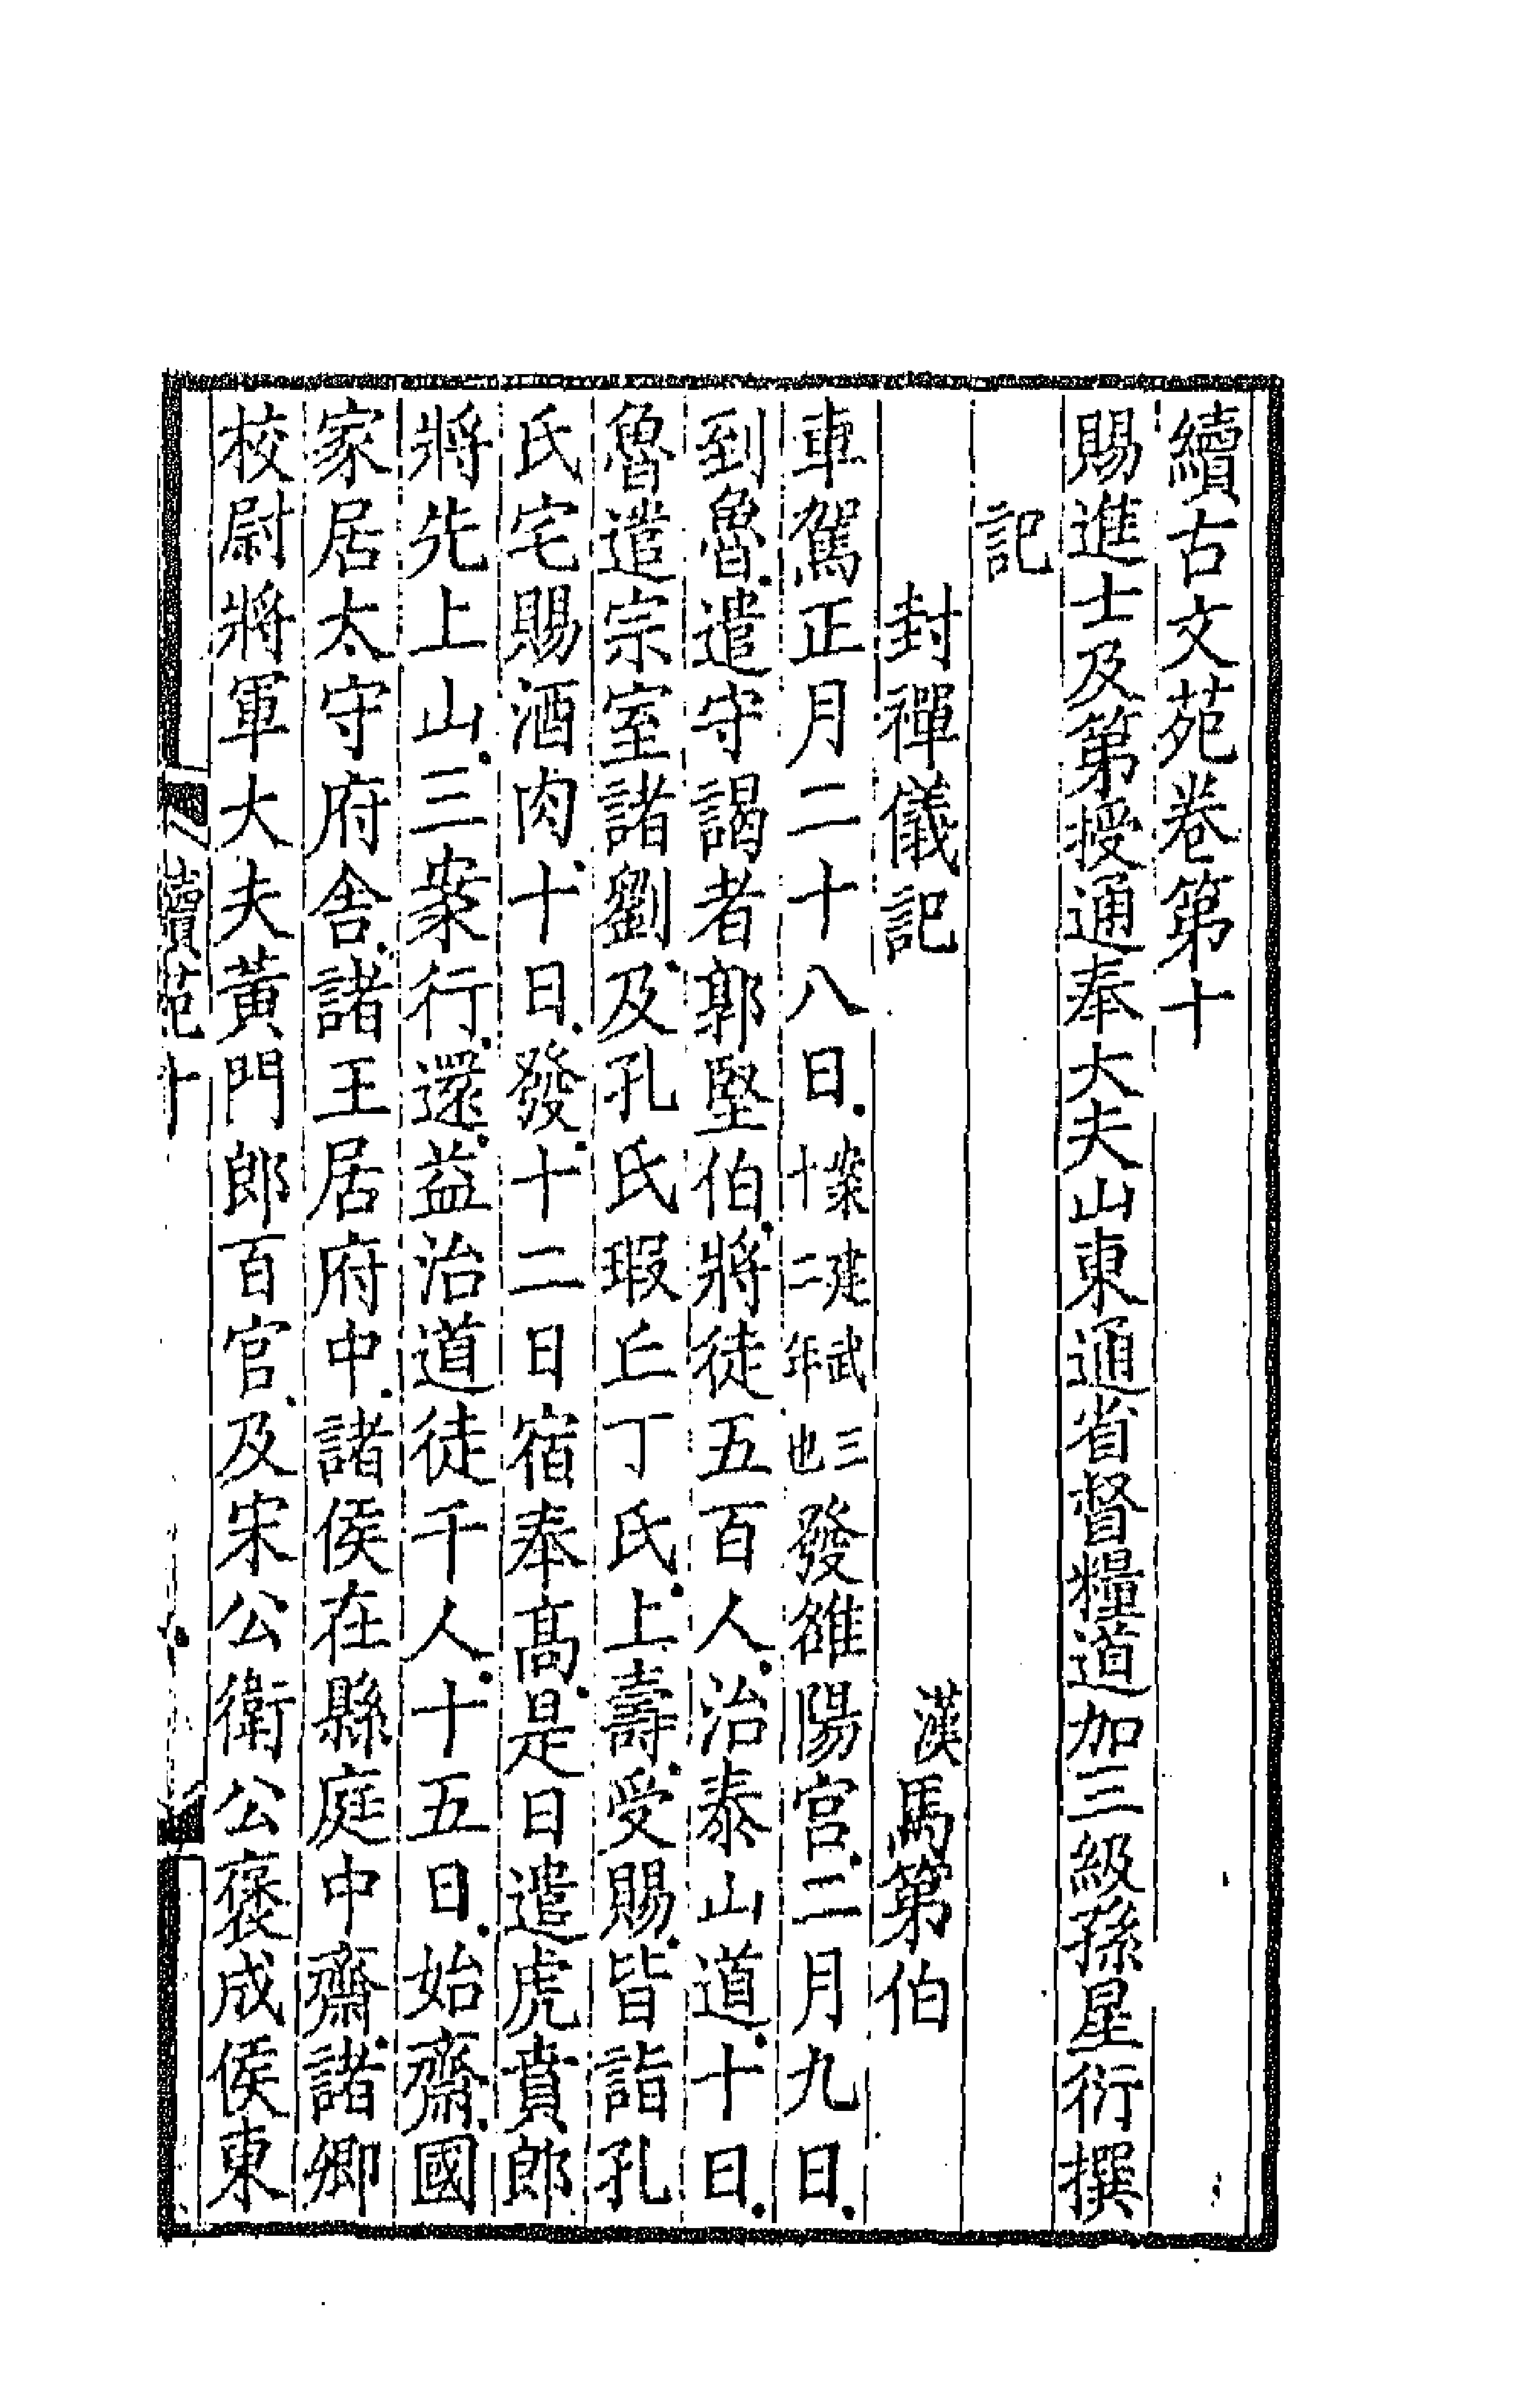 續古文苑卷第十
賜進士及第授通奉大夫山東通省督糧道加三級孫星衍撰
記
封禪儀記 漢馬第伯
車駕正月二十八日案建武三十二年也發雒陽宮二月九日
到魯遣守謁者郭堅伯將徒五百人治泰山道十日
魯遣宗室諸劉及孔氏瑕丘丁氏上壽受賜皆詣孔
氏宅賜酒肉十日發十二日宿奉高是日遣虎賁郎
將先上山三案行還益治道徒千人十五日始齋國
家居太守府舍諸王居府中諸侯在縣庭中齋諸卿
校尉將軍大夫黃門郎百官及宋公衞公褒成侯東
續苑十